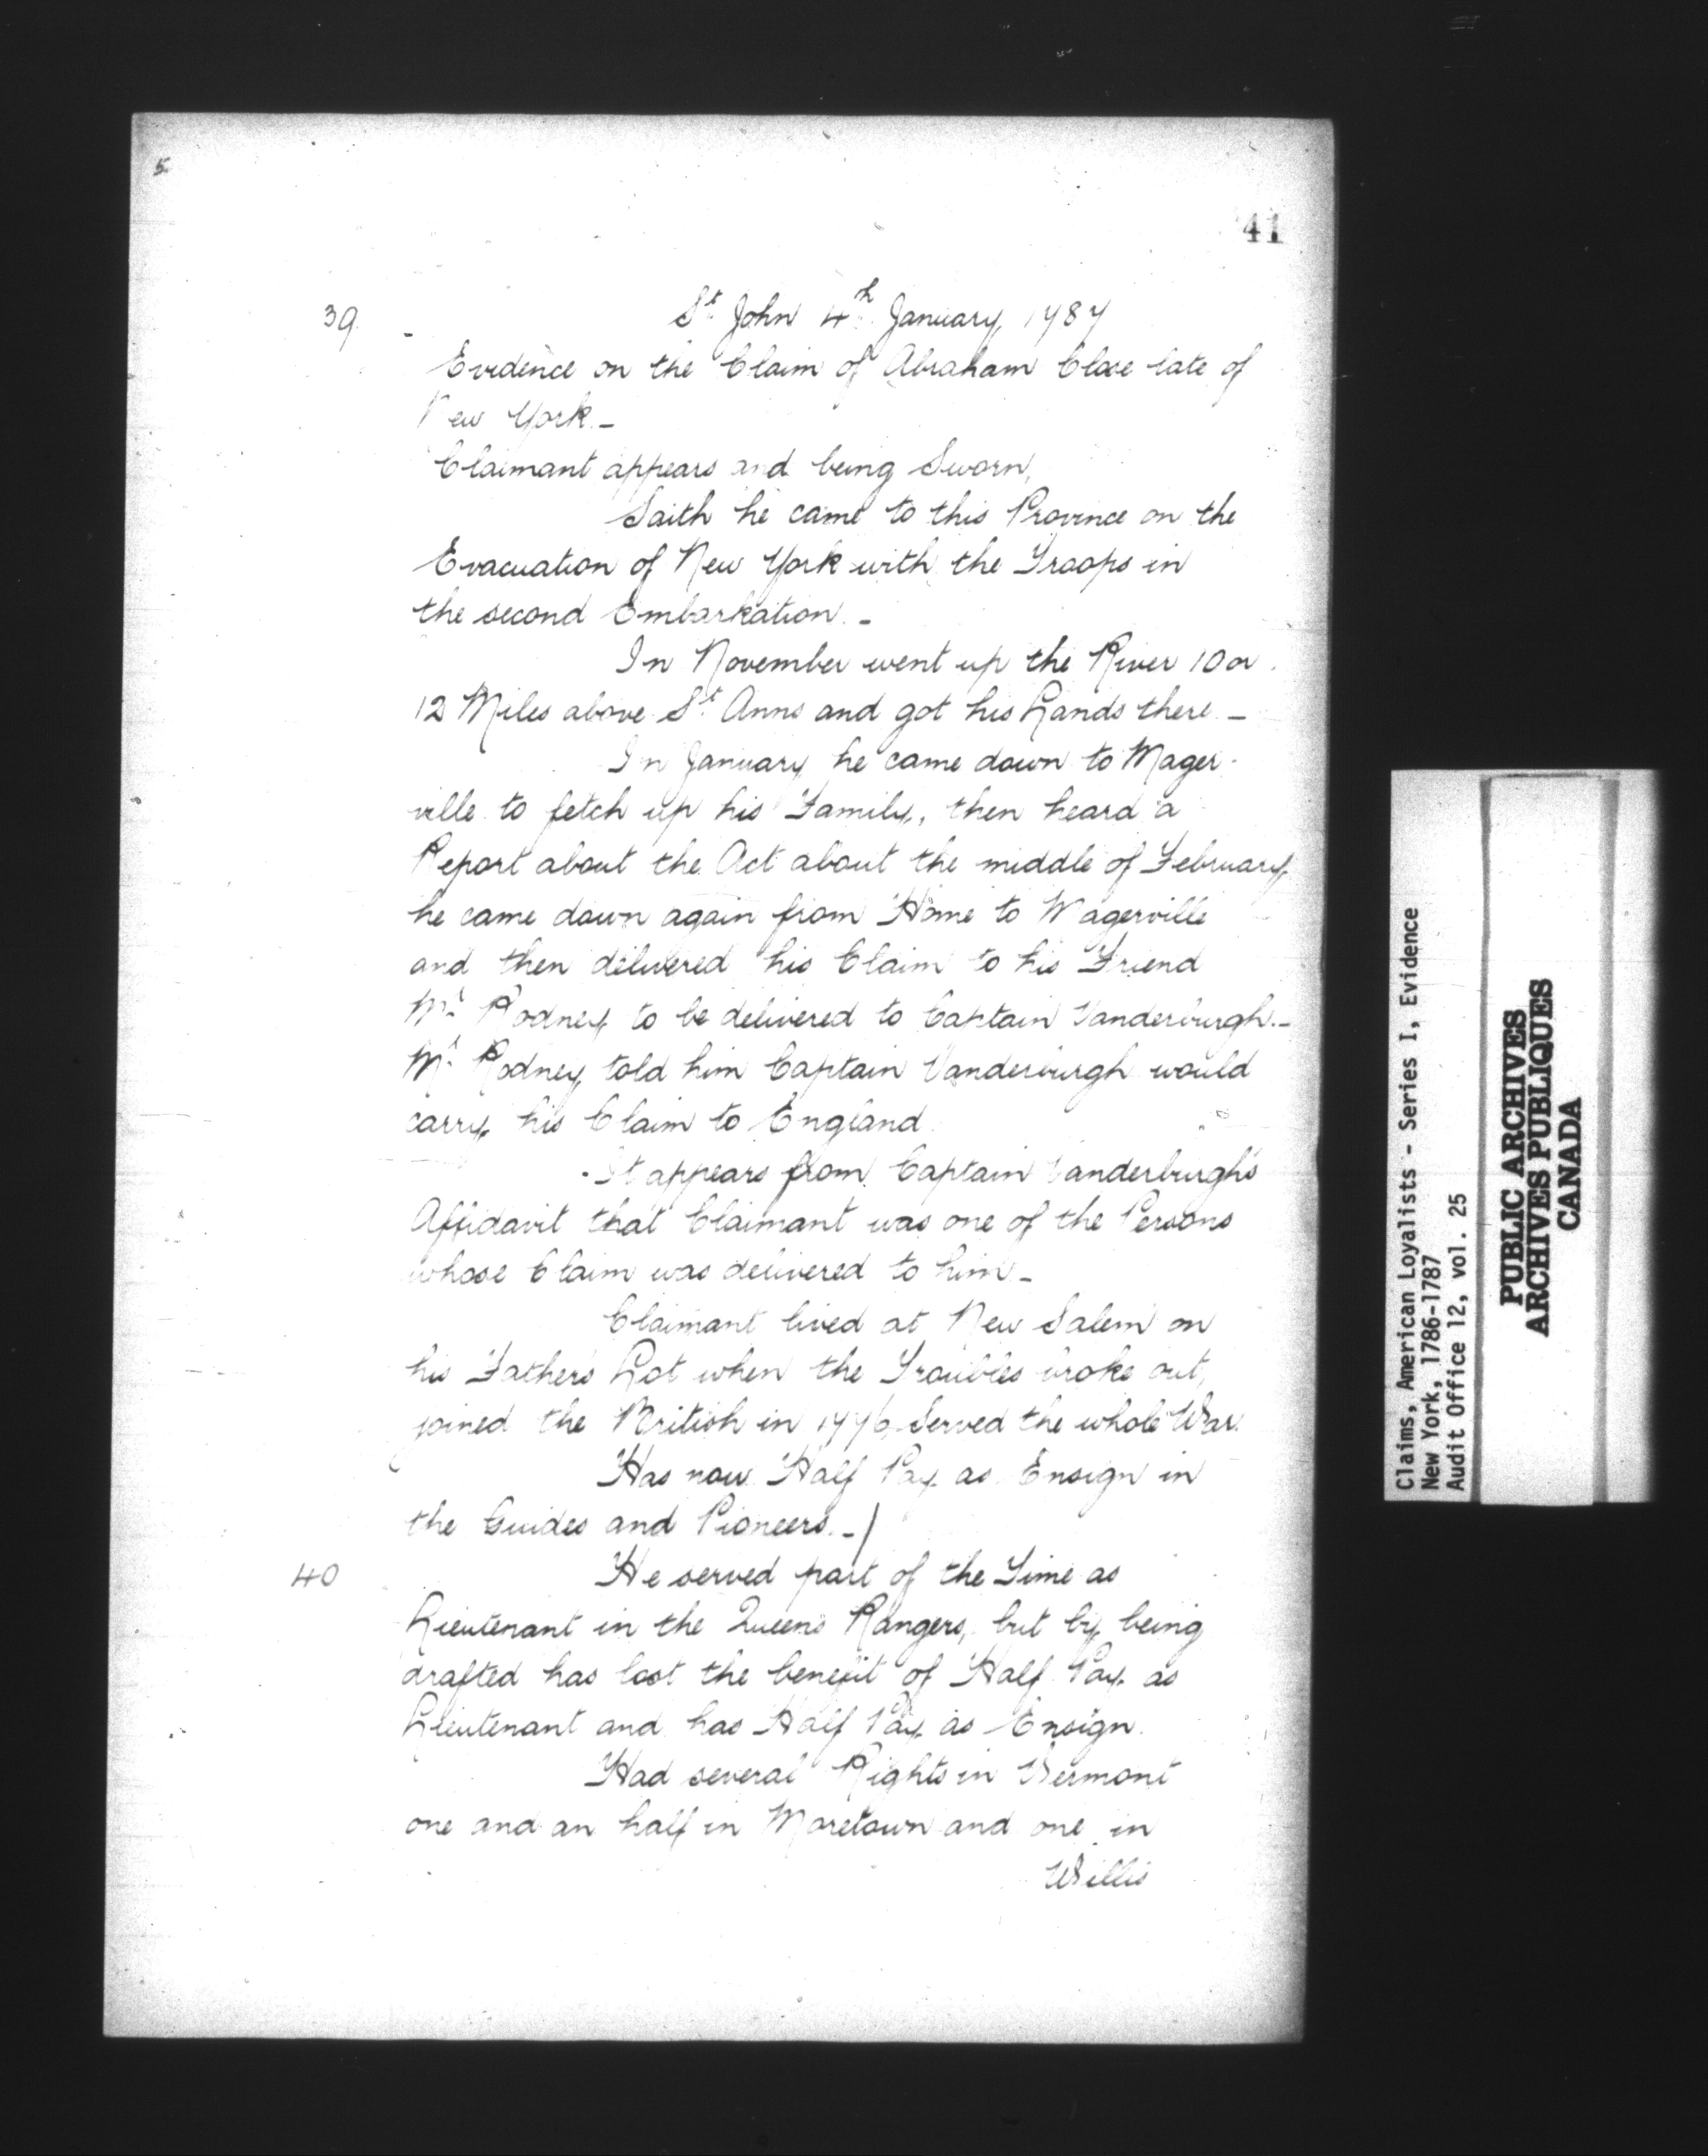 5
41
39
St John 4th January, 1787
Evidence on the Claim of Abraham Close late of
New York.-
Claimant appears and being Sworn,
Saith he came to this Province on the
Evacuation of New York with the Troops in
the second Embarkation.-
In November went up the River 10 or
12 Miles above St Anns and got his Lands there.-
In January he came down to Mager-
ville to fetch up his Family, then heard a
Report about the Act about the middle of February,
he came down again from Home to Magerville
and then delivered his Claim to his Friend
Mr Rodney to be delivered to Captain Vanderburgh.-
Mr Rodney told him Captain Vanderburgh would
carry his Claim to England
It appears from Captain Vanderburgh's
Affidavit that Claimant was one of the Persons
whose Claim was delivered to him-
Claimant lived at New Salem on
his Fathers Lot when the Troubles broke out,
joined the British in 1776 Served the whole War.
Has now Half Pay as Ensign in
the Guides and Pioneers.-/
40
He served part of the Time as
Lieutenant in the Queens Rangers, but by being
drafted has lost the benefit of Half Pay as
Lieutenant and has Half Pay as Ensign.
Had several Rights in Vermont
one and an half in Moretown and one in
Willis
Claims, American Loyalists - Series I, Evidence
New York, 1786-1787
Audit Office 12, vol. 25
PUBLIC ARCHIVES
ARCHIVES PUBLIQUES
CANADA